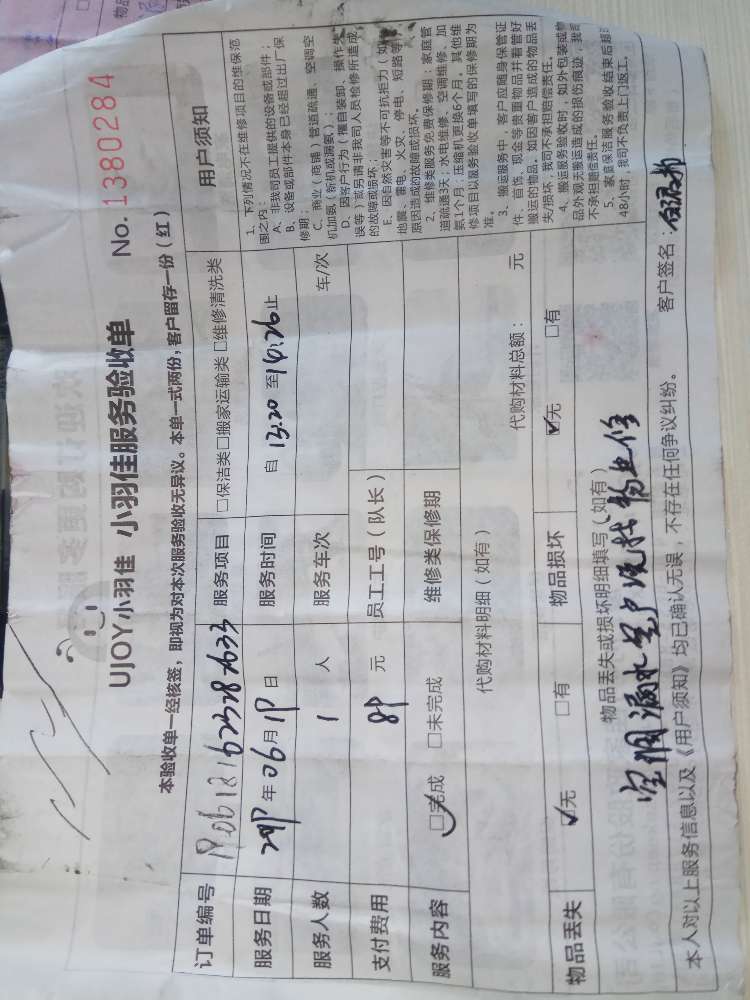 UJOY小羽佳 小羽佳服务验收单 No. 1380284
本验收单一经核签，即视为对本次服务验收无异议。本单一式两份，客户留存一份（红）
订单编号
服务项目 □保洁类□搬家运输类 □维修清洗类
服务日期 2019 年 06 月 19 日
服务时间 自 13.20 至 14:26 止
服务人数 1 人
服务车次 车/次
支付费用 89 元
员工工号（队长）
服务内容 ☑完成 □未完成
维修类保修期
代购材料明细（如有）
代购材料总额： 元
物品丢失 ☑无 □有
物品损坏 ☑无 □有
物品丢失或损坏明细填写（如有）
空调漏水
本人对以上服务信息以及《用户须知》均已确认无误，不存在任何争议纠纷。 客户签名：
用户须知
1、下列情况不在维修项目的维保范
围之内：
A、非我司员工提供的设备或部件；
B、设备或部件本身已经超过出厂保
修期；
C、商业（商铺）管道疏通、空调空
机加氨（新机或漏氨）；
D、因客户行为（擅自装卸、操作失
误等）或另请非我司人员检修所造成
的故障或损坏；
E、因自然灾害等不可抗拒力（如
地震、雷电、火灾、停电、短路等
原因造成的故障或损坏。
2、维修类服务免费保修期：家庭管
道疏通3天；水电维修、空调维修、加
氨1个月，压缩机更换6个月。其他维
修项目以服务验收单填写的保修期为
准。
3、搬运服务中，客户应随身保管证
件、首饰、现金等贵重物品并看管好
搬运的物品。如因客户造成的物品丢
失/损坏，我司不承担赔偿责任。
4、搬运服务验收时，如外包装或物
品外观无搬运造成的损伤痕迹，我司
不承担赔偿责任。
5、家庭保洁服务验收结束后超
48小时，我司不负责上门返工。